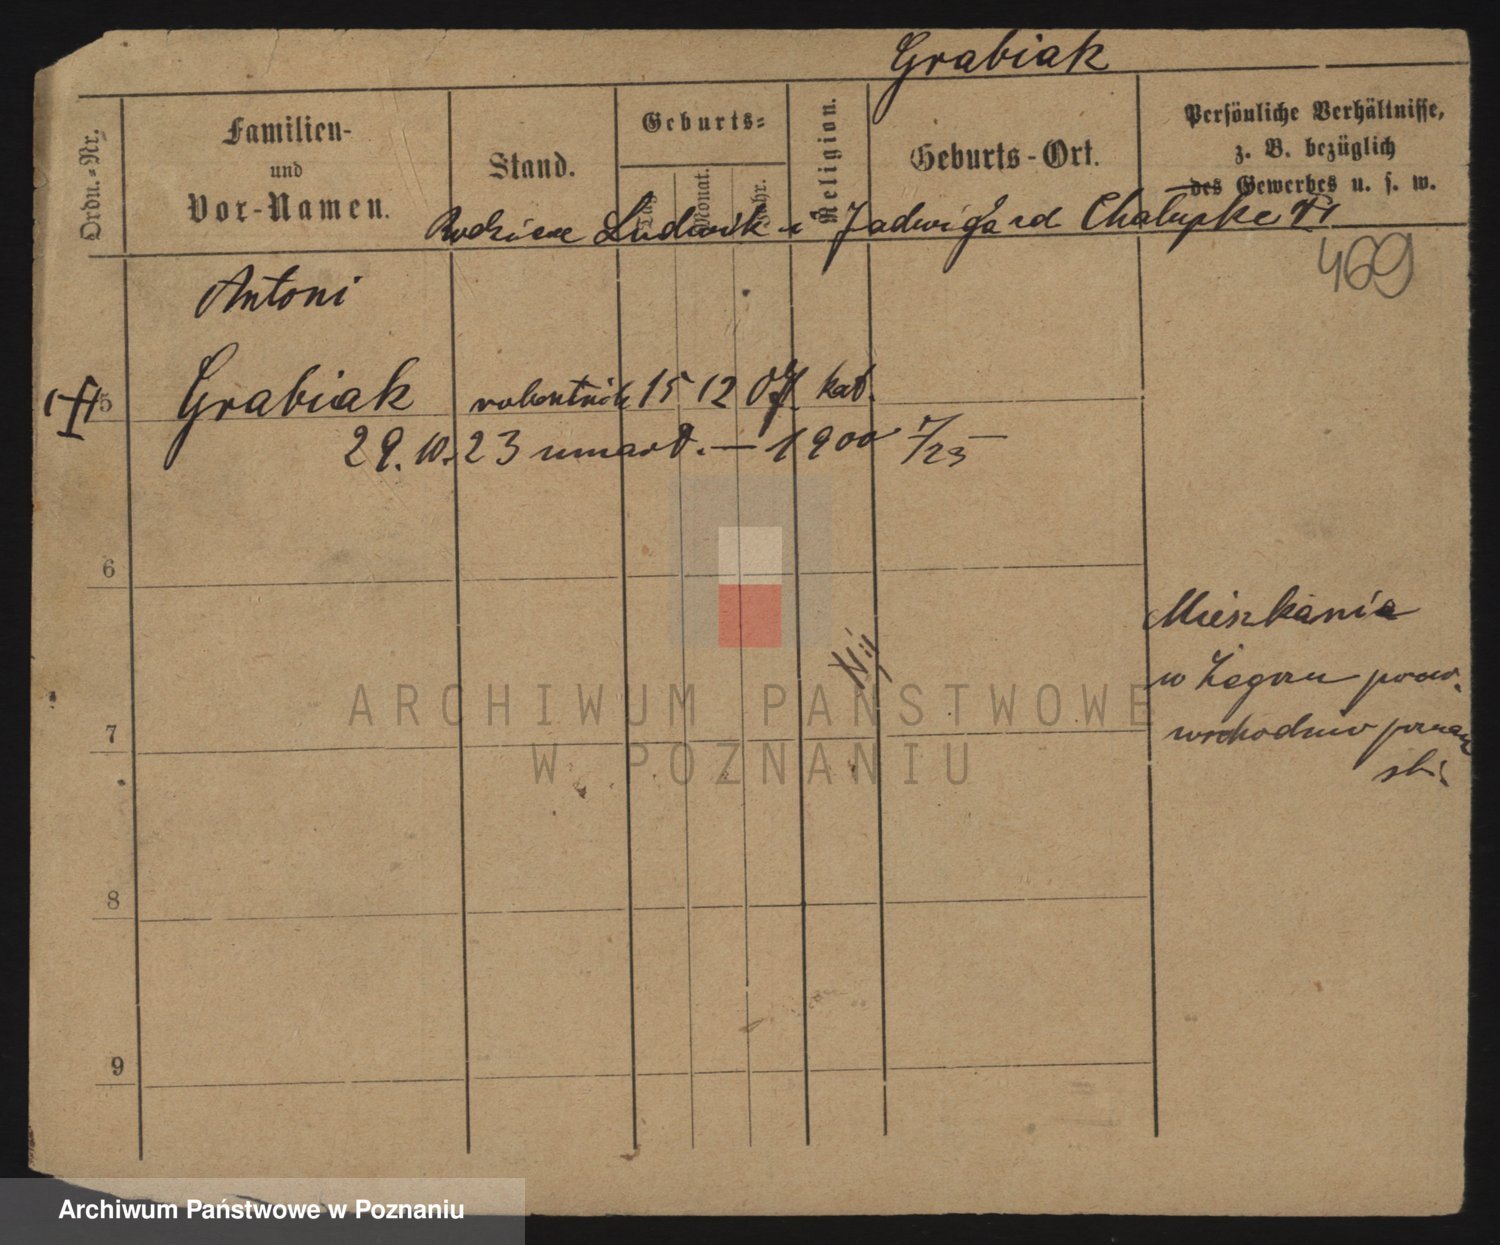 Grabiak
Ordn.-Nr.
Familien-
und
Vor-Namen.
Stand.
Geburts-
Tag.
Monat.
Jahr.
Religion.
Geburts-Ort.
Persönliche Verhältnisse,
z. B. bezüglich
des Gewerbes u. s. w.
Rodzice Ludwik i Jadwiga zd Chałupka
469
Antoni
5 Grabiak robotnik 15 12 07 kat.
29. 10. 23 umarł. — 1900 7/23 —
6
Mieszkania
w powr.
wschodnio poznań
ski
7
8
9
ARCHIWUM PAŃSTWOWE
W POZNANIU
Archiwum Państwowe w Poznaniu